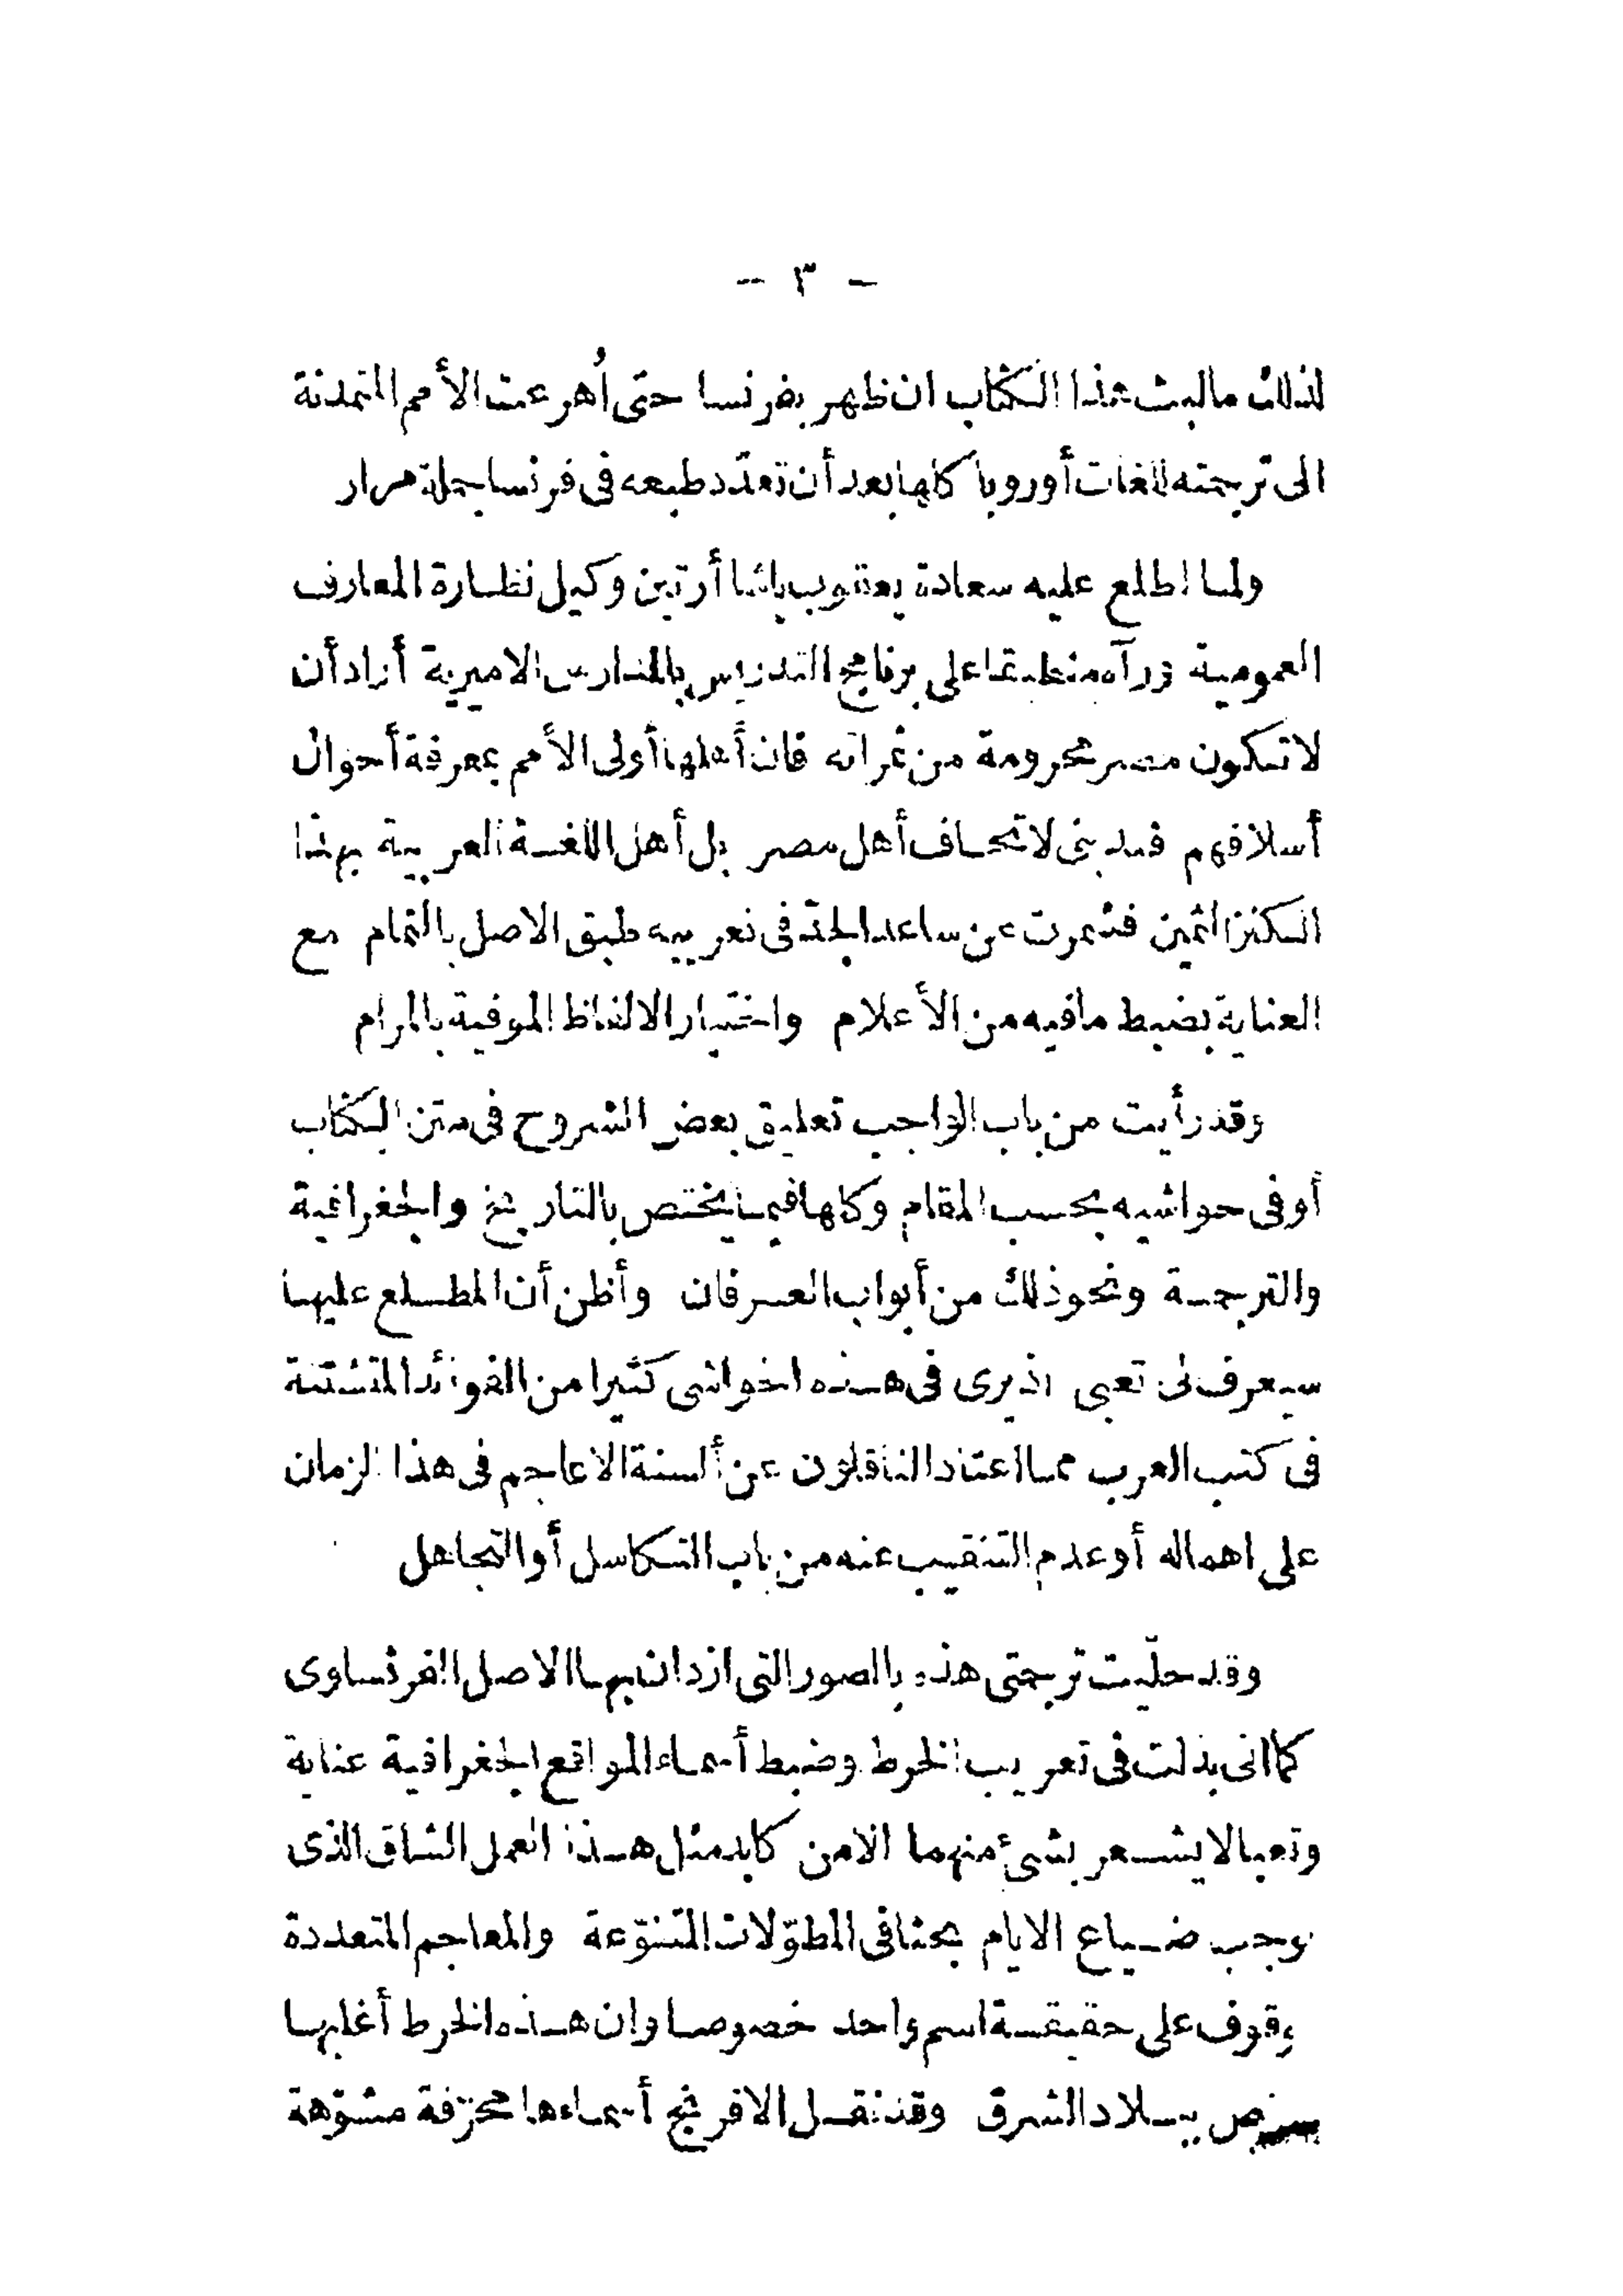 - ٣ -
لذلك ما لبث هذا الكتاب ان ظهر بفرنسا حتى أُهرعت الأمم المتمدنة
الى ترجمته للغات أوروبا كلها بعد أن تعدّد طبعه فى فرنسا جملة مرار
ولما اطلع عليه سعادة يعقوب باشا أرتين وكيل نظارة المعارف
العمومية ورآه منطبقا على برنامج التدريس بالمدارس الاميرية أراد أن
لا تكون مصر محرومة من ثمراته فان أهلها أولى الأمم بمعرفة أحوال
أسلافهم فندبنى لاتحاف أهل مصر بل أهل اللغة العربية بهذا
الكنز الثمين فشمرت عن ساعد الجدّ فى تعريبه طبق الاصل بالتمام مع
العناية بضبط ما فيه من الأعلام واختيار الالفاظ الموفية بالمرام
وقد رأيت من باب الواجب تعليق بعض الشروح فى متن الكتاب
أو فى حواشيه بحسب المقام وكلها فيما يختص بالتاريخ والجغرافية
والترجمة ونحو ذلك من أبواب العرفان وأظن أن المطلع عليها
سيعرف لى تعبى اذ يرى فى هذه الحواشى كثيرا من الفوائد المتشتتة
فى كتب العرب مما اعتاد الناقلون عن ألسنة الاعاجم فى هذا الزمان
على اهماله أو عدم التنقيب عنه من باب التكاسل أو التجاهل
وقد حلّيت ترجمتى هذه بالصور التى ازدان بها الاصل الفرنساوى
كما انى بذلت فى تعريب الخرط وضبط أسماء المواقع الجغرافية عناية
وتعبا لا يشعر بشئ منهما الا من كابد مثل هذا العمل الشاق الذى
يوجب ضياع الايام بحثا فى المطوّلات المتنوّعة والمعاجم المتعددة
وقوف على حقيقة اسم واحد خصوصا وان هذه الخرط أغلبها
ببلاد الشرق وقد نقل الافرنج أسماءها محرّفة مشوّهة